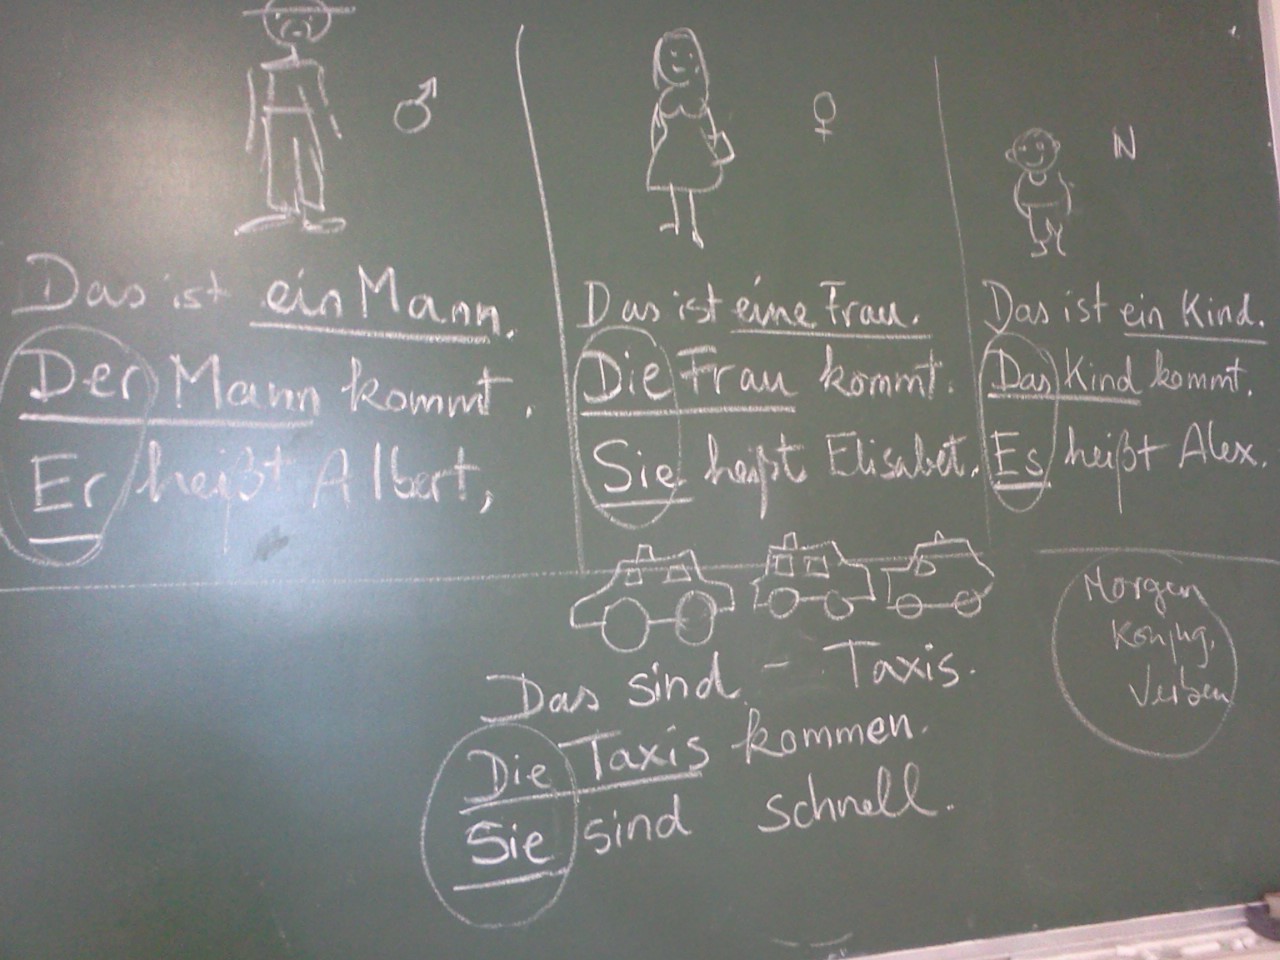 ♂
Das ist ein Mann.
Der Mann kommt.
Er heißt Albert,
♀
Das ist eine Frau.
Die Frau kommt.
Sie heißt Elisabet.
N
Das ist ein Kind.
Das Kind kommt.
Es heißt Alex.
Das sind - Taxis.
Die Taxis kommen.
Sie sind schnell.
Morgen
Konjug.
Verben